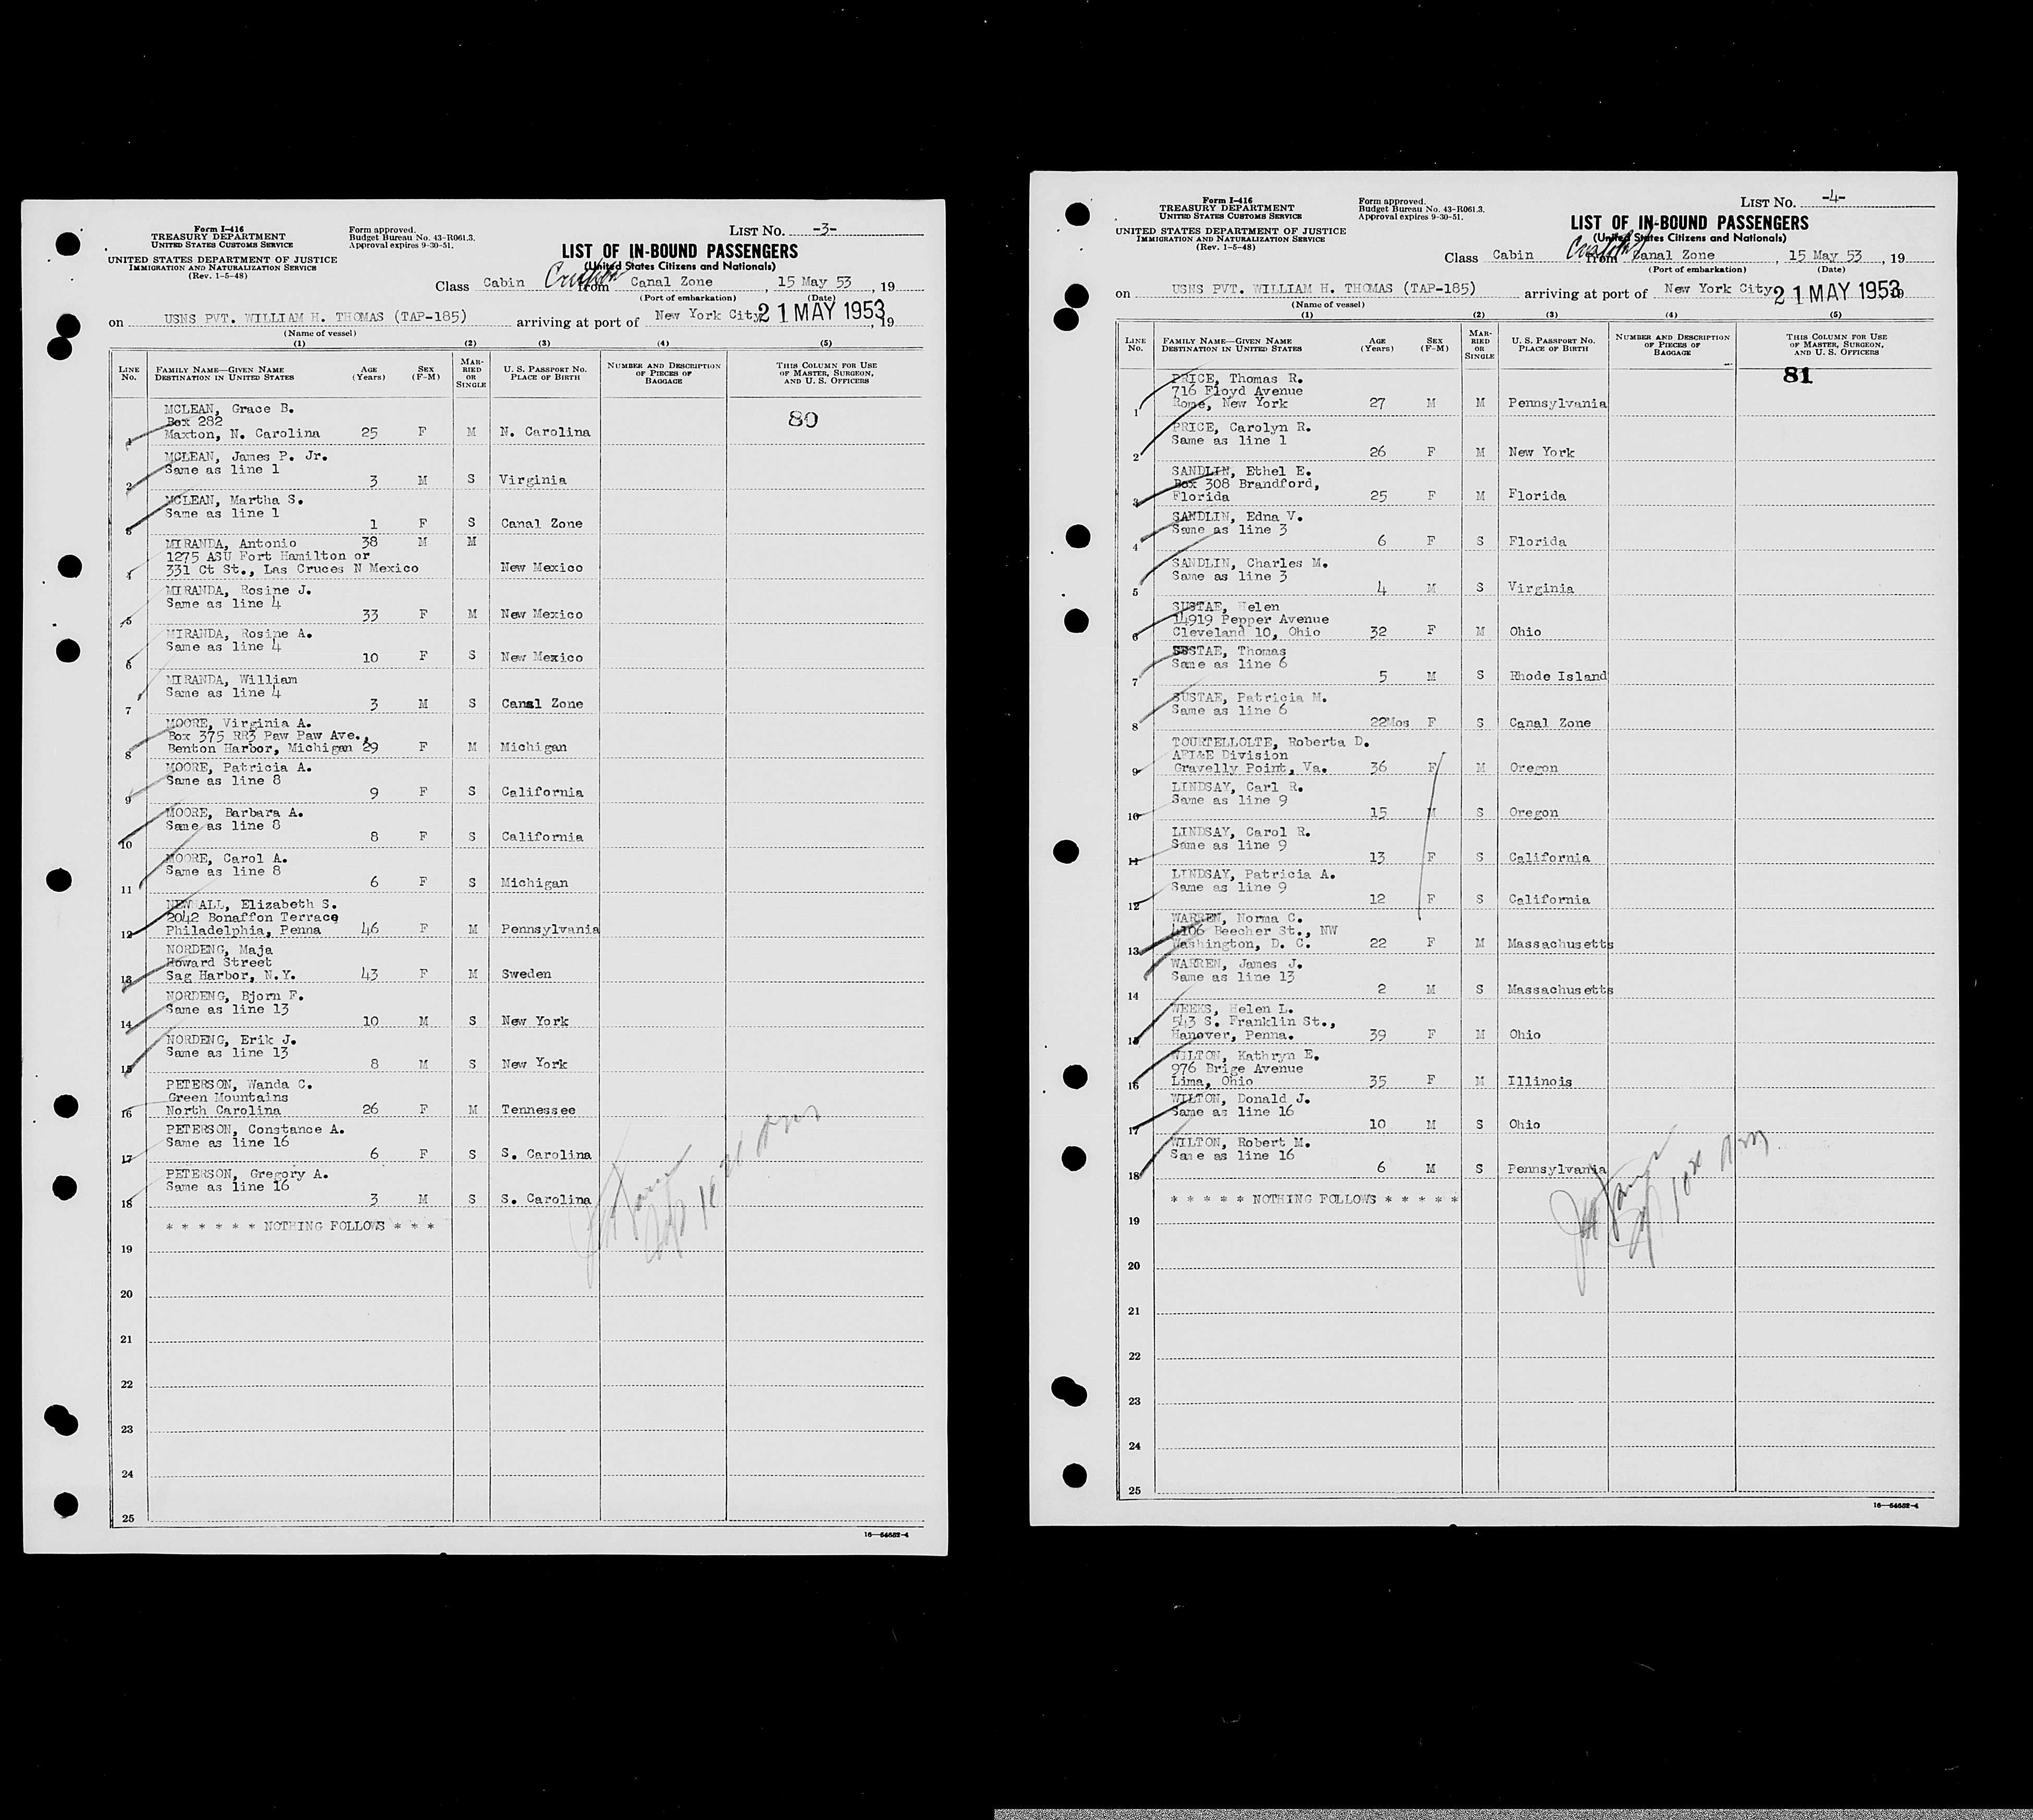 Form I-416
TREASURY DEPARTMENT
UNITED STATES CUSTOMS SERVICE
UNITED STATES DEPARTMENT OF JUSTICE
IMMIGRATION AND NATURALIZATION SERVICE
(Rev. 1-5-48)
Form approved.
Budget Bureau No. 43-R061.3.
Approval expires 9-30-51.
LIST No. -3-
LIST OF IN-BOUND PASSENGERS
(United States Citizens and Nationals)
Class Cabin from Canal Zone, 15 May 53, 19
(Port of embarkation) (Date)
on USNS PVT. WILLIAM H. THOMAS (TAP-185) arriving at port of New York City 21 MAY 1953, 19
(Name of vessel)
(1) (2) (3) (4) (5)
LINE No. FAMILY NAME—GIVEN NAME DESTINATION IN UNITED STATES AGE (Years) SEX (F-M) MARRIED OR SINGLE U. S. PASSPORT No. PLACE OF BIRTH NUMBER AND DESCRIPTION OF PIECES OF BAGGAGE THIS COLUMN FOR USE OF MASTER, SURGEON, AND U. S. OFFICERS
80
MCLEAN, Grace B.
Box 282
1 Maxton, N. Carolina 25 F M N. Carolina
MCLEAN, James P. Jr.
Same as line 1
2 3 M S Virginia
MCLEAN, Martha S.
Same as line 1
3 1 F S Canal Zone
MIRANDA, Antonio 38 M M
1275 ASU Fort Hamilton or
4 331 Ct St., Las Cruces N Mexico New Mexico
MIRANDA, Rosine J.
Same as line 4
5 33 F M New Mexico
MIRANDA, Rosine A.
Same as line 4
6 10 F S New Mexico
MIRANDA, William
Same as line 4
7 3 M S Canal Zone
MOORE, Virginia A.
Box 375 RR3 Paw Paw Ave.,
8 Benton Harbor, Michigan 29 F M Michigan
MOORE, Patricia A.
Same as line 8
9 9 F S California
MOORE, Barbara A.
Same as line 8
10 8 F S California
MOORE, Carol A.
Same as line 8
11 6 F S Michigan
NEWALL, Elizabeth S.
2042 Bonaffon Terrace
12 Philadelphia, Penna 46 F M Pennsylvania
NORDENG, Maja
Howard Street
13 Sag Harbor, N.Y. 43 F M Sweden
NORDENG, Bjorn F.
Same as line 13
14 10 M S New York
NORDENG, Erik J.
Same as line 13
15 8 M S New York
PETERSON, Wanda C.
Green Mountains
16 North Carolina 26 F M Tennessee
PETERSON, Constance A.
Same as line 16
17 6 F S S. Carolina
PETERSON, Gregory A.
Same as line 16
18 3 M S S. Carolina
* * * * * * NOTHING FOLLOWS * * *
19
20
21
22
23
24
25
16—54652-4
Form I-416
TREASURY DEPARTMENT
UNITED STATES CUSTOMS SERVICE
UNITED STATES DEPARTMENT OF JUSTICE
IMMIGRATION AND NATURALIZATION SERVICE
(Rev. 1-5-48)
Form approved.
Budget Bureau No. 43-R061.3.
Approval expires 9-30-51.
LIST No. -4-
LIST OF IN-BOUND PASSENGERS
(United States Citizens and Nationals)
Class Cabin from Canal Zone, 15 May 53, 19
(Port of embarkation) (Date)
on USNS PVT. WILLIAM H. THOMAS (TAP-185) arriving at port of New York City 21 MAY 1953, 19
(Name of vessel)
(1) (2) (3) (4) (5)
LINE No. FAMILY NAME—GIVEN NAME DESTINATION IN UNITED STATES AGE (Years) SEX (F-M) MARRIED OR SINGLE U. S. PASSPORT No. PLACE OF BIRTH NUMBER AND DESCRIPTION OF PIECES OF BAGGAGE THIS COLUMN FOR USE OF MASTER, SURGEON, AND U. S. OFFICERS
81
PRICE, Thomas R.
716 Floyd Avenue
1 Rome, New York 27 M M Pennsylvania
PRICE, Carolyn R.
Same as line 1
2 26 F M New York
SANDLIN, Ethel E.
Box 308 Brandford,
3 Florida 25 F M Florida
SANDLIN, Edna V.
Same as line 3
4 6 F S Florida
SANDLIN, Charles M.
Same as line 3
5 4 M S Virginia
SUSTAE, Helen
14919 Pepper Avenue
6 Cleveland 10, Ohio 32 F M Ohio
SUSTAE, Thomas
Same as line 6
7 5 M S Rhode Island
SUSTAE, Patricia M.
Same as line 6
8 22Mos F S Canal Zone
TOURTELLOLTE, Roberta D.
API&E Division
9 Gravelly Point, Va. 36 F M Oregon
LINDSAY, Carl R.
Same as line 9
10 15 M S Oregon
LINDSAY, Carol R.
Same as line 9
11 13 F S California
LINDSAY, Patricia A.
Same as line 9
12 12 F S California
WARREN, Norma C.
4106 Beecher St., NW
13 Washington, D. C. 22 F M Massachusetts
WARREN, James J.
Same as line 13
14 2 M S Massachusetts
WEEKS, Helen L.
543 S. Franklin St.,
15 Hanover, Penna. 39 F M Ohio
WILTON, Kathryn E.
976 Brige Avenue
16 Lima, Ohio 35 F M Illinois
WILTON, Donald J.
Same as line 16
17 10 M S Ohio
WILTON, Robert M.
Same as line 16
18 6 M S Pennsylvania
* * * * * NOTHING FOLLOWS * * * * *
19
20
21
22
23
24
25
16—54652-4